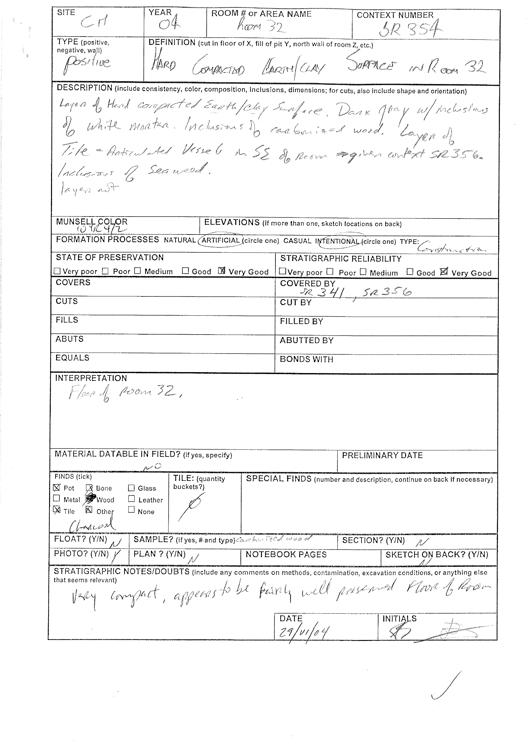 SITE CH YEAR 04 ROOM # OR AREA NAME Room 32 CONTEXT NUMBER SR 354
TYPE (positive, negative, wall) positive
DEFINITION (cut in floor of X, fill of pit Y, north wall of room Z, etc.)
HARD COMPACTED EARTH/CLAY SURFACE IN ROOM 32
DESCRIPTION (include consistency, color, composition, inclusions, dimensions; for cuts, also include shape and orientation)
Layer of Hard compacted Earth/clay Surface. Dark gray w/ inclusions
of white mortar. Inclusions of carbonised wood. Layer of
Tile + Articulated Vessel in SE of room given context SR356.
Inclusions of Seaweed.
layers not
MUNSELL COLOR 10YR 4/2
ELEVATIONS (if more than one, sketch locations on back)
FORMATION PROCESSES NATURAL ARTIFICIAL (circle one) CASUAL INTENTIONAL (circle one) TYPE: Construction
STATE OF PRESERVATION STRATIGRAPHIC RELIABILITY
Very poor Poor Medium Good Very Good Very poor Poor Medium Good Very Good
COVERS COVERED BY SR 341, SR356
CUTS CUT BY
FILLS FILLED BY
ABUTS ABUTTED BY
EQUALS BONDS WITH
INTERPRETATION
Floor of Room 32.
MATERIAL DATABLE IN FIELD? (if yes, specify) NO
PRELIMINARY DATE
FINDS (tick) TILE: (quantity buckets?) SPECIAL FINDS (number and description, continue on back if necessary)
Pot Bone Glass
Metal Wood Leather
Tile Other None
Charcoal
FLOAT? (Y/N) N SAMPLE? (if yes, # and type) carbonized wood SECTION? (Y/N) N
PHOTO? (Y/N) Y PLAN ? (Y/N) N NOTEBOOK PAGES SKETCH ON BACK? (Y/N) N
STRATIGRAPHIC NOTES/DOUBTS (include any comments on methods, contamination, excavation conditions, or anything else
that seems relevant)
Very compact, appears to be fairly well preserved Floor of Room
DATE 29/VI/04 INITIALS